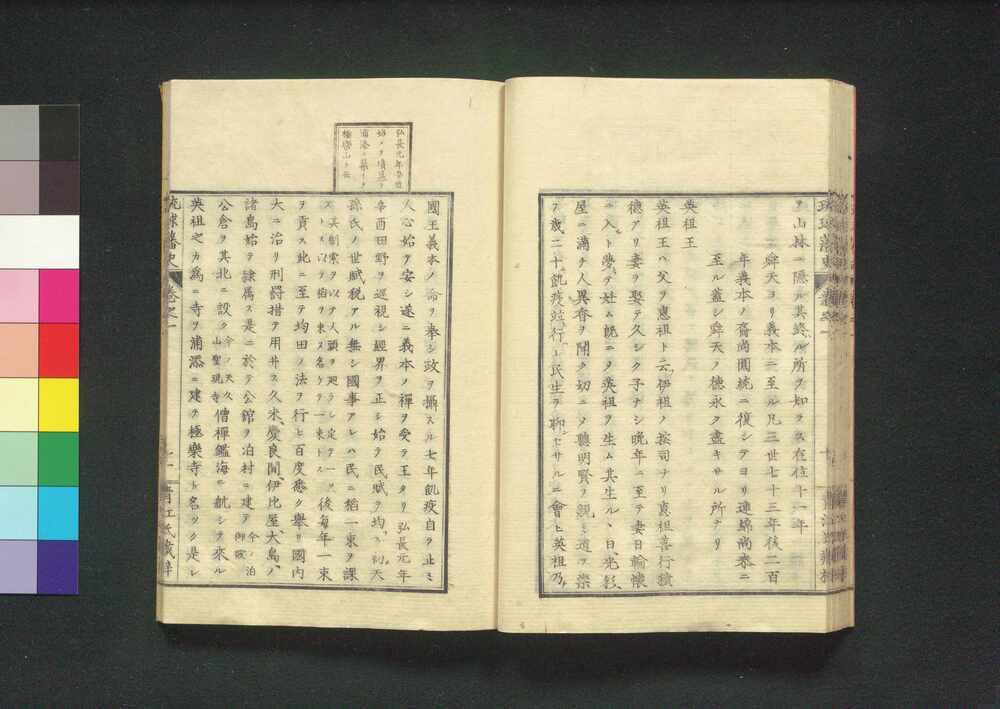 ヲ山林ニ隱ル其終ル所ヲ知ラス在位十一年
舜天ヨリ義本ニ至ル凡三世七十三年後二百
年義本ノ裔尚圓統ニ復シテヨリ連綿尚泰ニ
至ル蓋シ舜天ノ德永ク盡キサル所ナリ
英祖王
英祖王ハ父ヲ惠祖ト云伊祖ノ按司ナリ惠祖善行積
德アリ妻ヲ娶テ久シク子ナシ晩年ニ至テ妻日輪懷
ニ入ト夢ミテ妊ム既ニシテ英祖ヲ生ム其生ルヽ日光彩
屋ニ滿チ人異香ヲ聞ク切ニシテ聰明賢ヲ親ミ道ヲ崇
フ歳二十飢疫並行レ民生ヲ聊セサルニ會ヒ英祖乃
弘長元年
始メテ墳墓ヲ
浦添ニ築ク
極樂山ト云
國王義本ノ命ヲ奉シ政ヲ攝スル七年飢疫自ラ止ミ
人心始テ安シ遂ニ義本ノ禪ヲ受テ王タリ弘長元年
辛酉田野ヲ巡視シ經界ヲ正シ始テ民賦ヲ均ス初天
孫氏ノ世賦稅アル無シ國事アレハ民ニ稻一束ヲ課
ス其制索ヲ以テ人頭ヲ廻ラシ定テ一
トス以テ稻ヲ束ス名ケテ一束トス後每年一束
ヲ貢ス此ニ至テ均田ノ法ヲ行ヒ百度悉ク擧リ國内
大ニ治リ刑罸措テ用井ス久米慶良間伊比屋大島ノ
諸島始テ隷屬ス是ニ於テ公館ヲ泊村ニ建テ今ノ泊御殿
公倉ヲ其北ニ設ク今ノ天久山聖現寺僧禪鑑海ニ航シテ來ル
英祖之カ爲ニ寺ヲ浦添ニ建テ極樂寺ト名ツク是レ
琉球藩史 卷之一